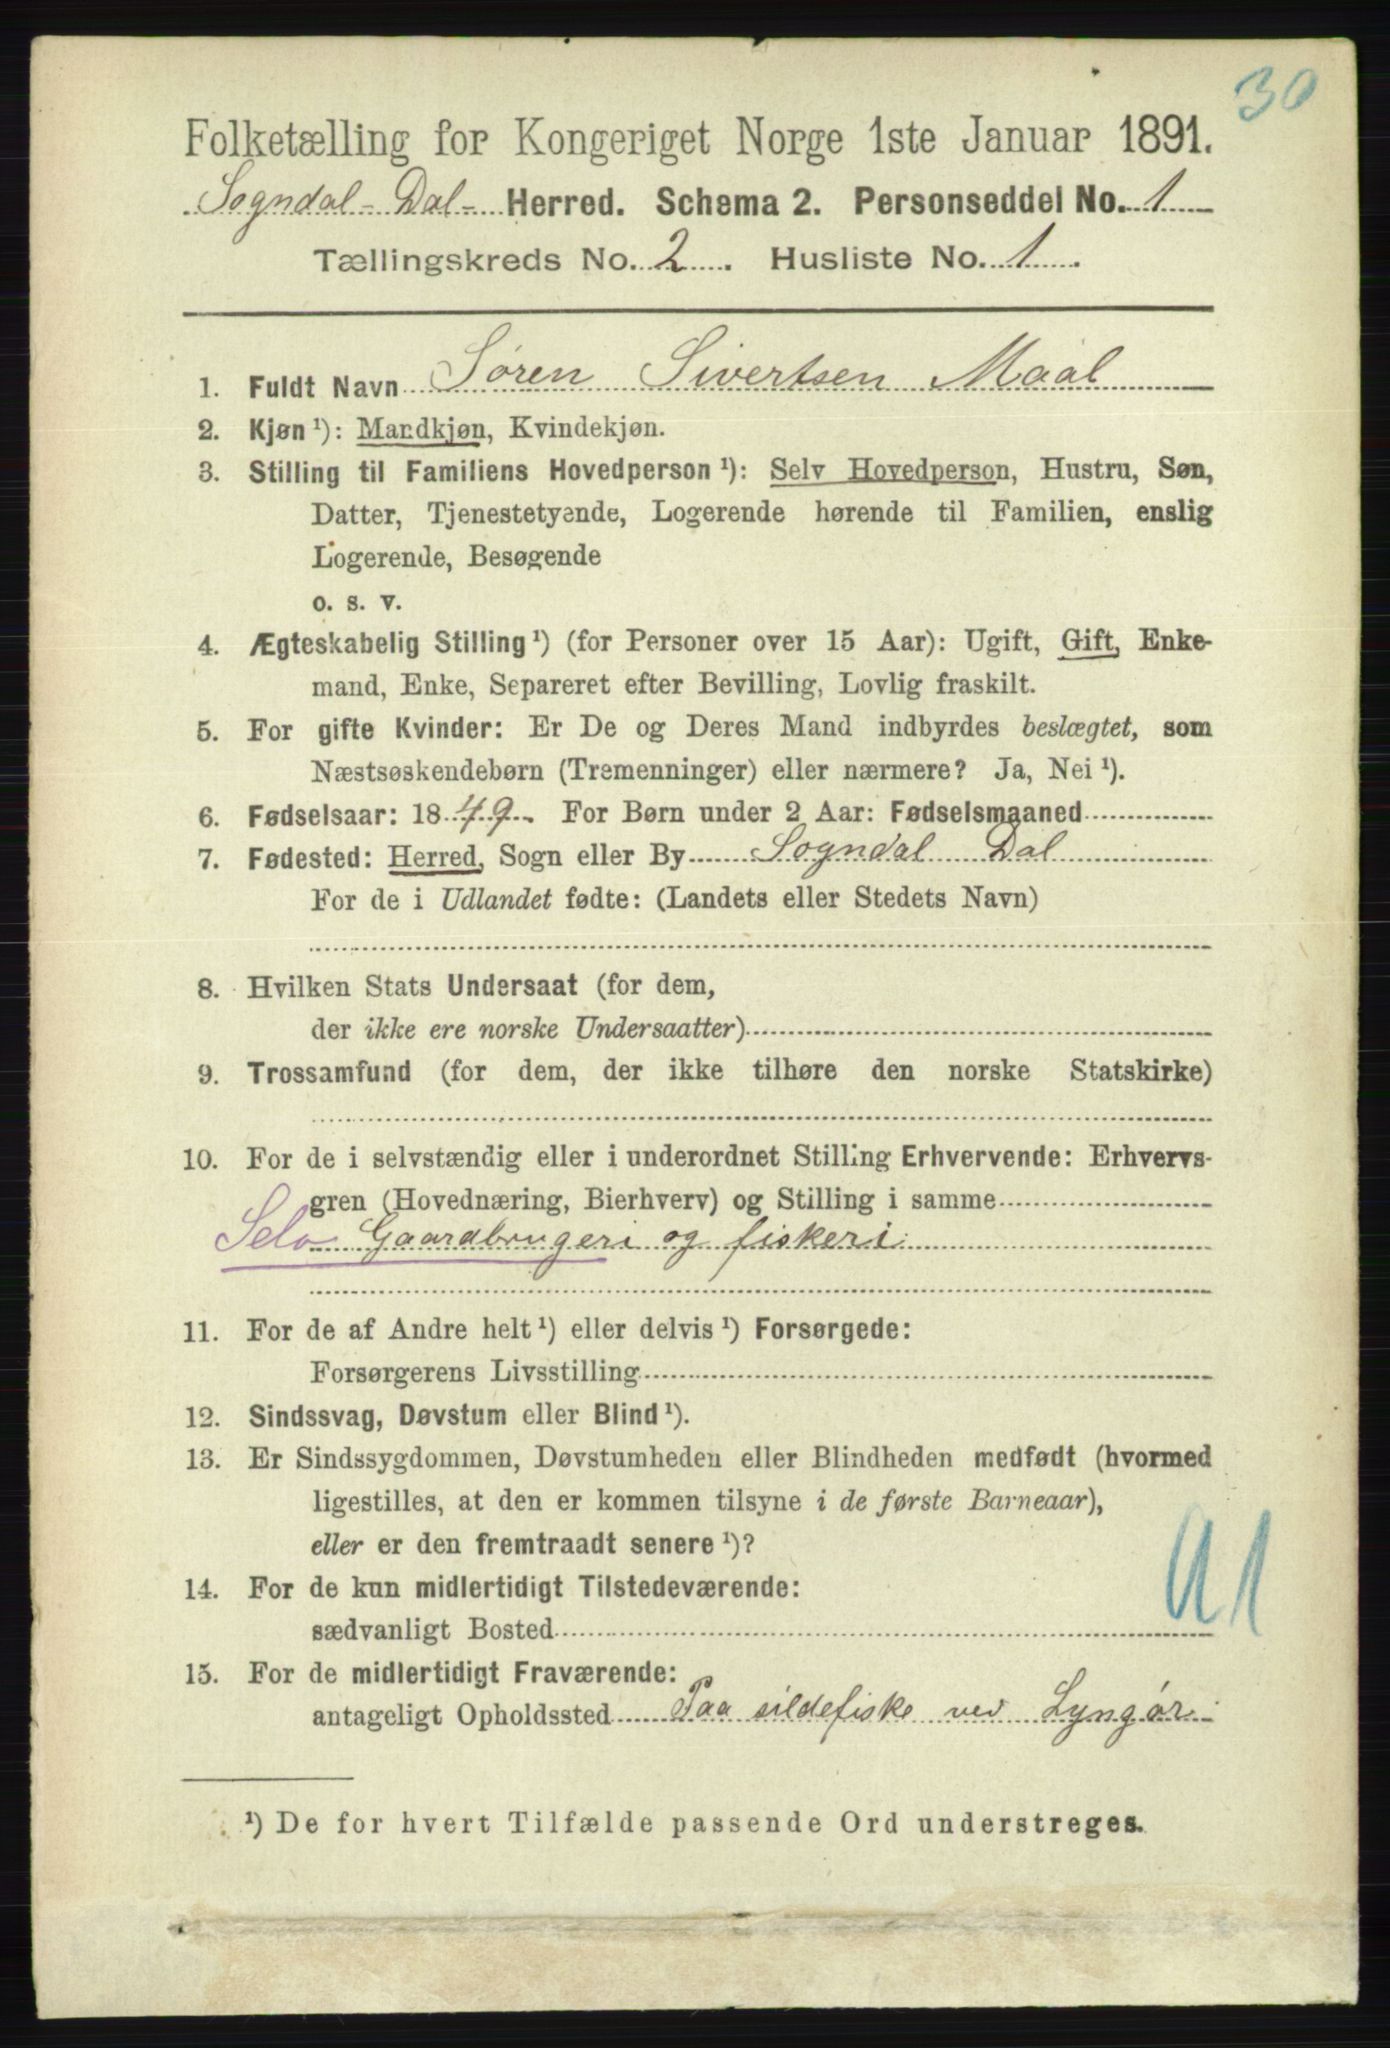 30
Folketælling for Kongeriget Norge 1ste Januar 1891.
Sogndal - Dal - Herred. Schema 2. Personseddel No. 1
Tællingskreds No. 2. Husliste No. 1.
1. Fuldt Navn Søren Sivertsen Maal
2. Kjøn ¹): Mandkjøn, Kvindekjøn.
3. Stilling til Familiens Hovedperson ¹): Selv Hovedperson, Hustru, Søn,
Datter, Tjenestetyende, Logerende hørende til Familien, enslig
Logerende, Besøgende
o. s. v.
4. Ægteskabelig Stilling ¹) (for Personer over 15 Aar): Ugift, Gift, Enke-
mand, Enke, Separeret efter Bevilling, Lovlig fraskilt.
5. For gifte Kvinder: Er De og Deres Mand indbyrdes beslægtet, som
Næstsøskendebørn (Tremenninger) eller nærmere? Ja, Nei ¹).
6. Fødselsaar: 1849. For Børn under 2 Aar: Fødselsmaaned
7. Fødested: Herred, Sogn eller By Sogndal Dal
For de i Udlandet fødte: (Landets eller Stedets Navn)
8. Hvilken Stats Undersaat (for dem,
der ikke ere norske Undersaatter)
9. Trossamfund (for dem, der ikke tilhøre den norske Statskirke)
10. For de i selvstændig eller i underordnet Stilling Erhvervende: Erhvervs-
gren (Hovednæring, Bierhverv) og Stilling i samme
Selv Gaardbrugeri og fiskeri
11. For de af Andre helt ¹) eller delvis ¹) Forsørgede:
Forsørgerens Livsstilling
12. Sindssvag, Døvstum eller Blind ¹).
13. Er Sindssygdommen, Døvstumheden eller Blindheden medfødt (hvormed
ligestilles, at den er kommen tilsyne i de første Barneaar),
eller er den fremtraadt senere ¹)?
14. For de kun midlertidigt Tilstedeværende:
sædvanligt Bosted
15. For de midlertidigt Fraværende:
antageligt Opholdssted Paa sildefiske ved Lyngør
¹) De for hvert Tilfælde passende Ord understreges.